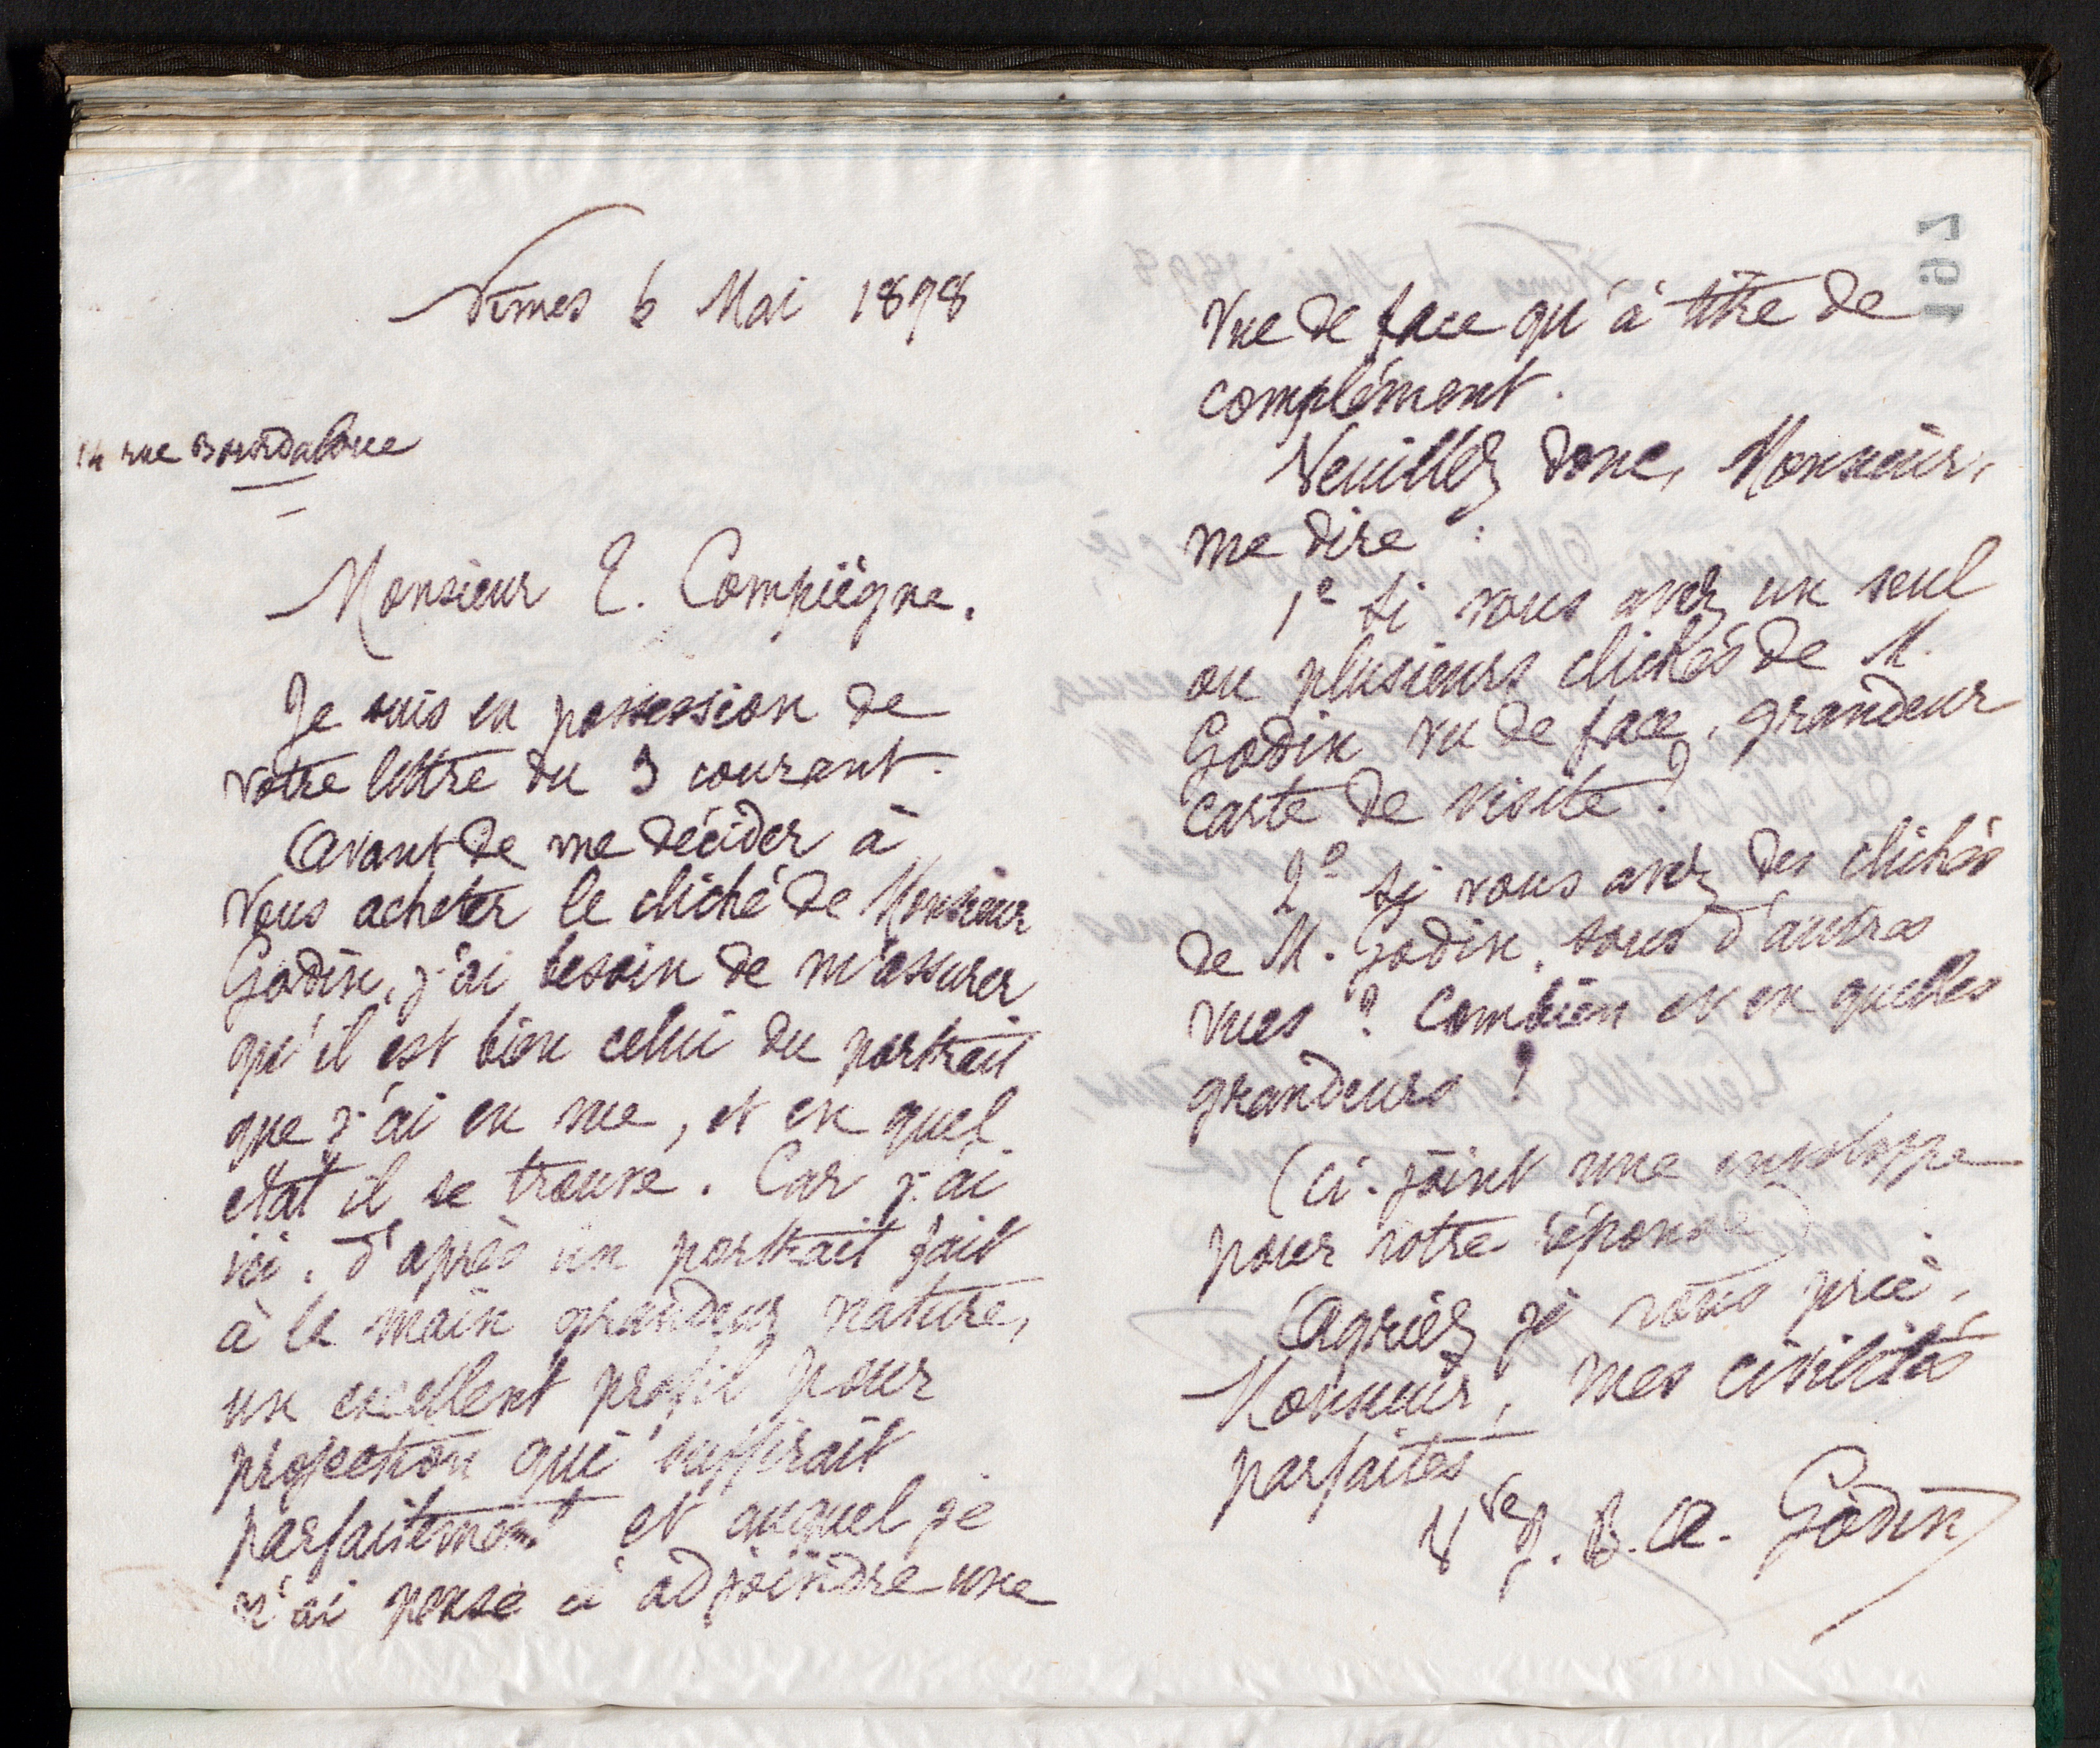 Nîmes 6 Mai 1898
14 rue Bourdaloue
Monsieur E. Compiègne.
Je suis en possession de
votre lettre du 3 courant.
Avant de me décider à
vous acheter le cliché de Monsieur
Godin, j'ai besoin de m'assurer
qu'il est bien celui du portrait
que j'ai en vue, et en quel
état il se trouve. Car j'ai
ici, d'après un portrait fait
à la main grandeur nature,
un excellent profil pour
projection qui suffirait
parfaitement et auquel je
n'ai pensé à adjoindre une
vue de face qu'à titre de
complément.
Veuillez donc, Monsieur,
me dire :
1º Si vous avez un seul
ou plusieurs clichés de M.
Godin vu de face, grandeur
carte de visite ?
2º Si vous avez des clichés
de M. Godin, sous d'autres
vues ? Combien et en quelles
grandeurs ?
(ci-joint une enveloppe
pour votre réponse)
Agréez je vous prie,
Monsieur, mes civilités
parfaites
Vve J. B. A. Godin
167